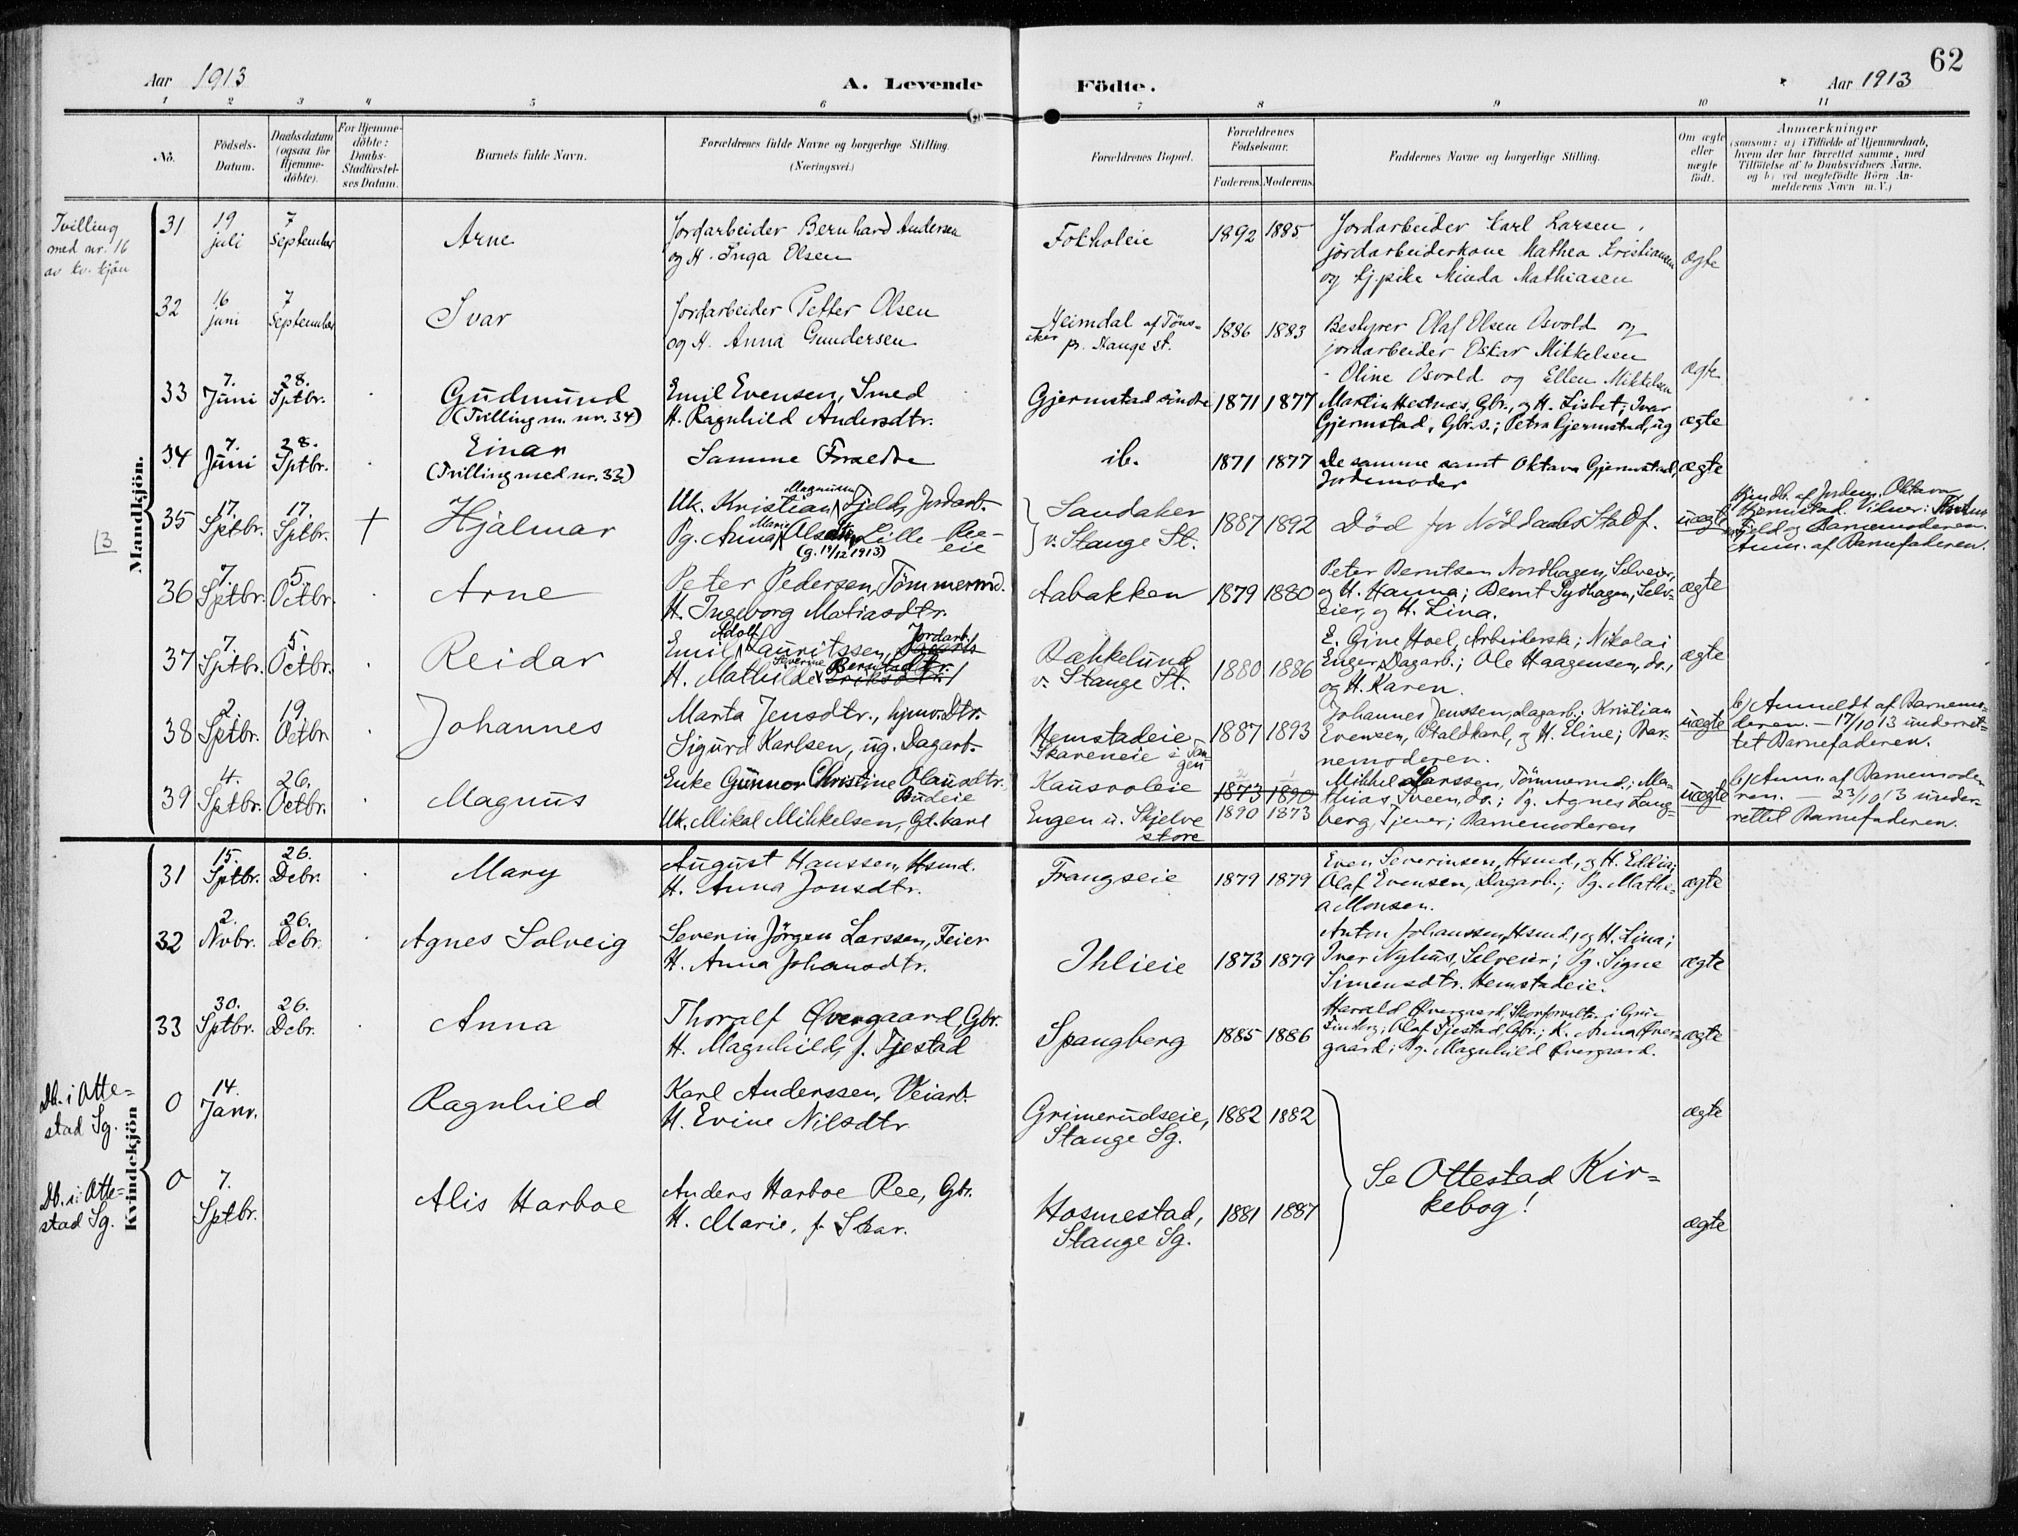 62
Aar 1913
A. Levende
Födte.
Aar 1913
1 2 3 4 5 6 7 8 9 10 11
No.
Födsels-Datum.
Daabsdatum (ogsaa for Hjemme-döbte).
For Hjemme-döbte: Daabs-Stadfæstel-ses Datum.
Barnets fulde Navn.
Forældrenes fulde Navne og borgerlige Stilling.
(Næringsvei.)
Forældrenes Bopæl.
Forældrenes Födselsaar.
Faderens. Moderens.
Faddernes Navne og borgerlige Stilling.
Om ægte eller uægte födt.
Anmærkninger
(saasom: a) i Tilfælde af Hjemmedaab,
hvem der har forrettet samme, med
Tilföielse af to Daabsvidners Navne.
og b) ved uægtefödte Börn An-
melderens Navn m. V.)
Mandkjön.
Tvilling
med nr. 16
av kv. kjön
31 19 juli 7 September Arne
Jordarbeider Bernhard Andersen
og H. Inga Olsen
Fokholeie 1892 1885
Jordarbeider Karl Larsen,
jordarbeiderkone Mathea Kristiansen
og tj.pike Minda Mathiasen
ægte
32 16 juni 7 September Ivar
Jordarbeider Petter Olsen
og H. Anna Gundersen
Heimdal af Töns-
aker
p. Stange st.
1886 1883
Bestyrer Olaf Olsen Osvold og
jordarbeider Oskar Mikkelsen
- Oline Osvold og Ellen Mikkelsen
ægte
33 7. Juni 28. Sptbr. Gudmund
(Tvilling m. nr. 34)
Emil Evensen, Smed
H. Ragnhild Andersdtr.
Gjermstad söndre 1871 1877
Martin Hestnes, Gbr., og H. Lisbet; Ivar
Gjermstad, Gbr.s.; Petra Gjermstad, ug
ægte
34 7. Juni 28. Sptbr. Einar
(Tvilling med nr. 33)
Samme Forældre
ib. 1871 1877
De samme samt Oktava Gjermstad,
Jordemoder
ægte
13
35 17. Sptbr. 17. Sptbr. † Hjalmar
Uk. Kristian Magnussen Fjeld, Jordarb.
Pg. Anna Marie Olsen, Lille-Ree-
eie
(g. 14/12 1913)
Sandaker
v. Stange St.
1887 1892
Död för Nöddaabs Stadf.
uægte
Hjmdb. af Jordem. Oktava
Gjermstad. Vidner:
Fjeld og Barnemoderen.
Anm. af Barnefaderen.
36 7. Sptbr. 5. Octbr. Arne
Peter Pedersen, Tömmermd.
H. Ingeborg Matiasdtr.
Aabakken 1879 1880
Peter Berntsen Nordhagen, Selveier,
og H. Hanna; Bernt Sydhagen, Selv-
eier, og H. Lina.
ægte
37 7. Sptbr. 5. Octbr. Reidar
Emil Adolf Lauritssen, Jordarb.
H. Mathilde Severine Berntsdtr.
Bækkelund
v. Stange St.
1880 1886
E. Gine Hoel, Arbeiderske; Nikolai
Enger, Dagarb.; Ole Haagensen, do.,
og H. Karen.
ægte
38 2. Sptbr. 19. Octbr Johannes
Marta Jensdtr., hjmv. Dtr.
Sigurd Karlsen, ug. Dagarb.
Hemstadeie
Skareneie i
1887 1893
Johannes Jenssen, Dagarb.; Kristian
Evensen, Staldkarl, og H. Eline; Bar-
nemoderen.
uægte
b) Anmeldt af Barnemo-
deren. — 17/10 13 underret-
tet Barnefaderen.
39 4. Sptbr. 26. Octbr. Magnus
Enke Gunnor Christine Olausdtr.
Budeie
Uk. Mikal Mikkelsen, Gd.karl
Kausvoleie
Engen u. Skjelve
store
2 1
1873 1890
1890 1873
Mikkel Larssen, Tömmermd.; Ma-
thias Sveen, do.; Pg. Agnes Lang-
berg, Tjener; Barnemoderen
uægte
b) Anm. af Barnemode-
ren. — 23/10 13 under-
rettet Barnefaderen.
Kvindekjön
31 15. Sptbr. 26. Debr. Mary
August Hanssen, Hsmd.
H. Anna Jonsdtr.
Frangseie 1879 1879
Even Severinsen, Hsmd, og H. Edtia;
Olaf Evensen, Dagarb.; Pg. Mathe-
a Monsen.
ægte
32 2. Nvbr. 26. Debr. Agnes Solveig
Severin Jörgen Larssen, Feier
H. Anna Johansdtr.
Ihlieie 1873 1879
Anton Johanssen, Hsmd, og H. Lina;
Iver Nyhus, Selveier; Pg. Signe
Simensdtr. Hemstadeie.
ægte
33 30. Sptbr. 26. Debr. Anna
Thoralf Øvergaard, Gbr.
H. Magnhild, f. Tjestad
Spangberg 1885 1886
Harald Øvergaard, Skorforvalter i Grue
Finskog; Olaf Tjestad, Gbr.; K. Anna Øver-
gaard; Pg. Magnhild Øvergaard.
ægte
Db. i Otte-
stad Sg.
0 14. Janr. Ragnhild
Karl Anderssen, Veiarb.
H. Evine Nilsdtr
Grimerudseie,
Stange Sg.
1882 1882
ægte
Se Ottestad Kir-
kebog!
Db. i Otte-
stad Sg.
0 7. Sptbr. Alis Harboe
Anders Harboe Ree, Gbr.
H. Marie, f. Skar.
Hosmestad,
Stange Sg.
1881 1887
ægte